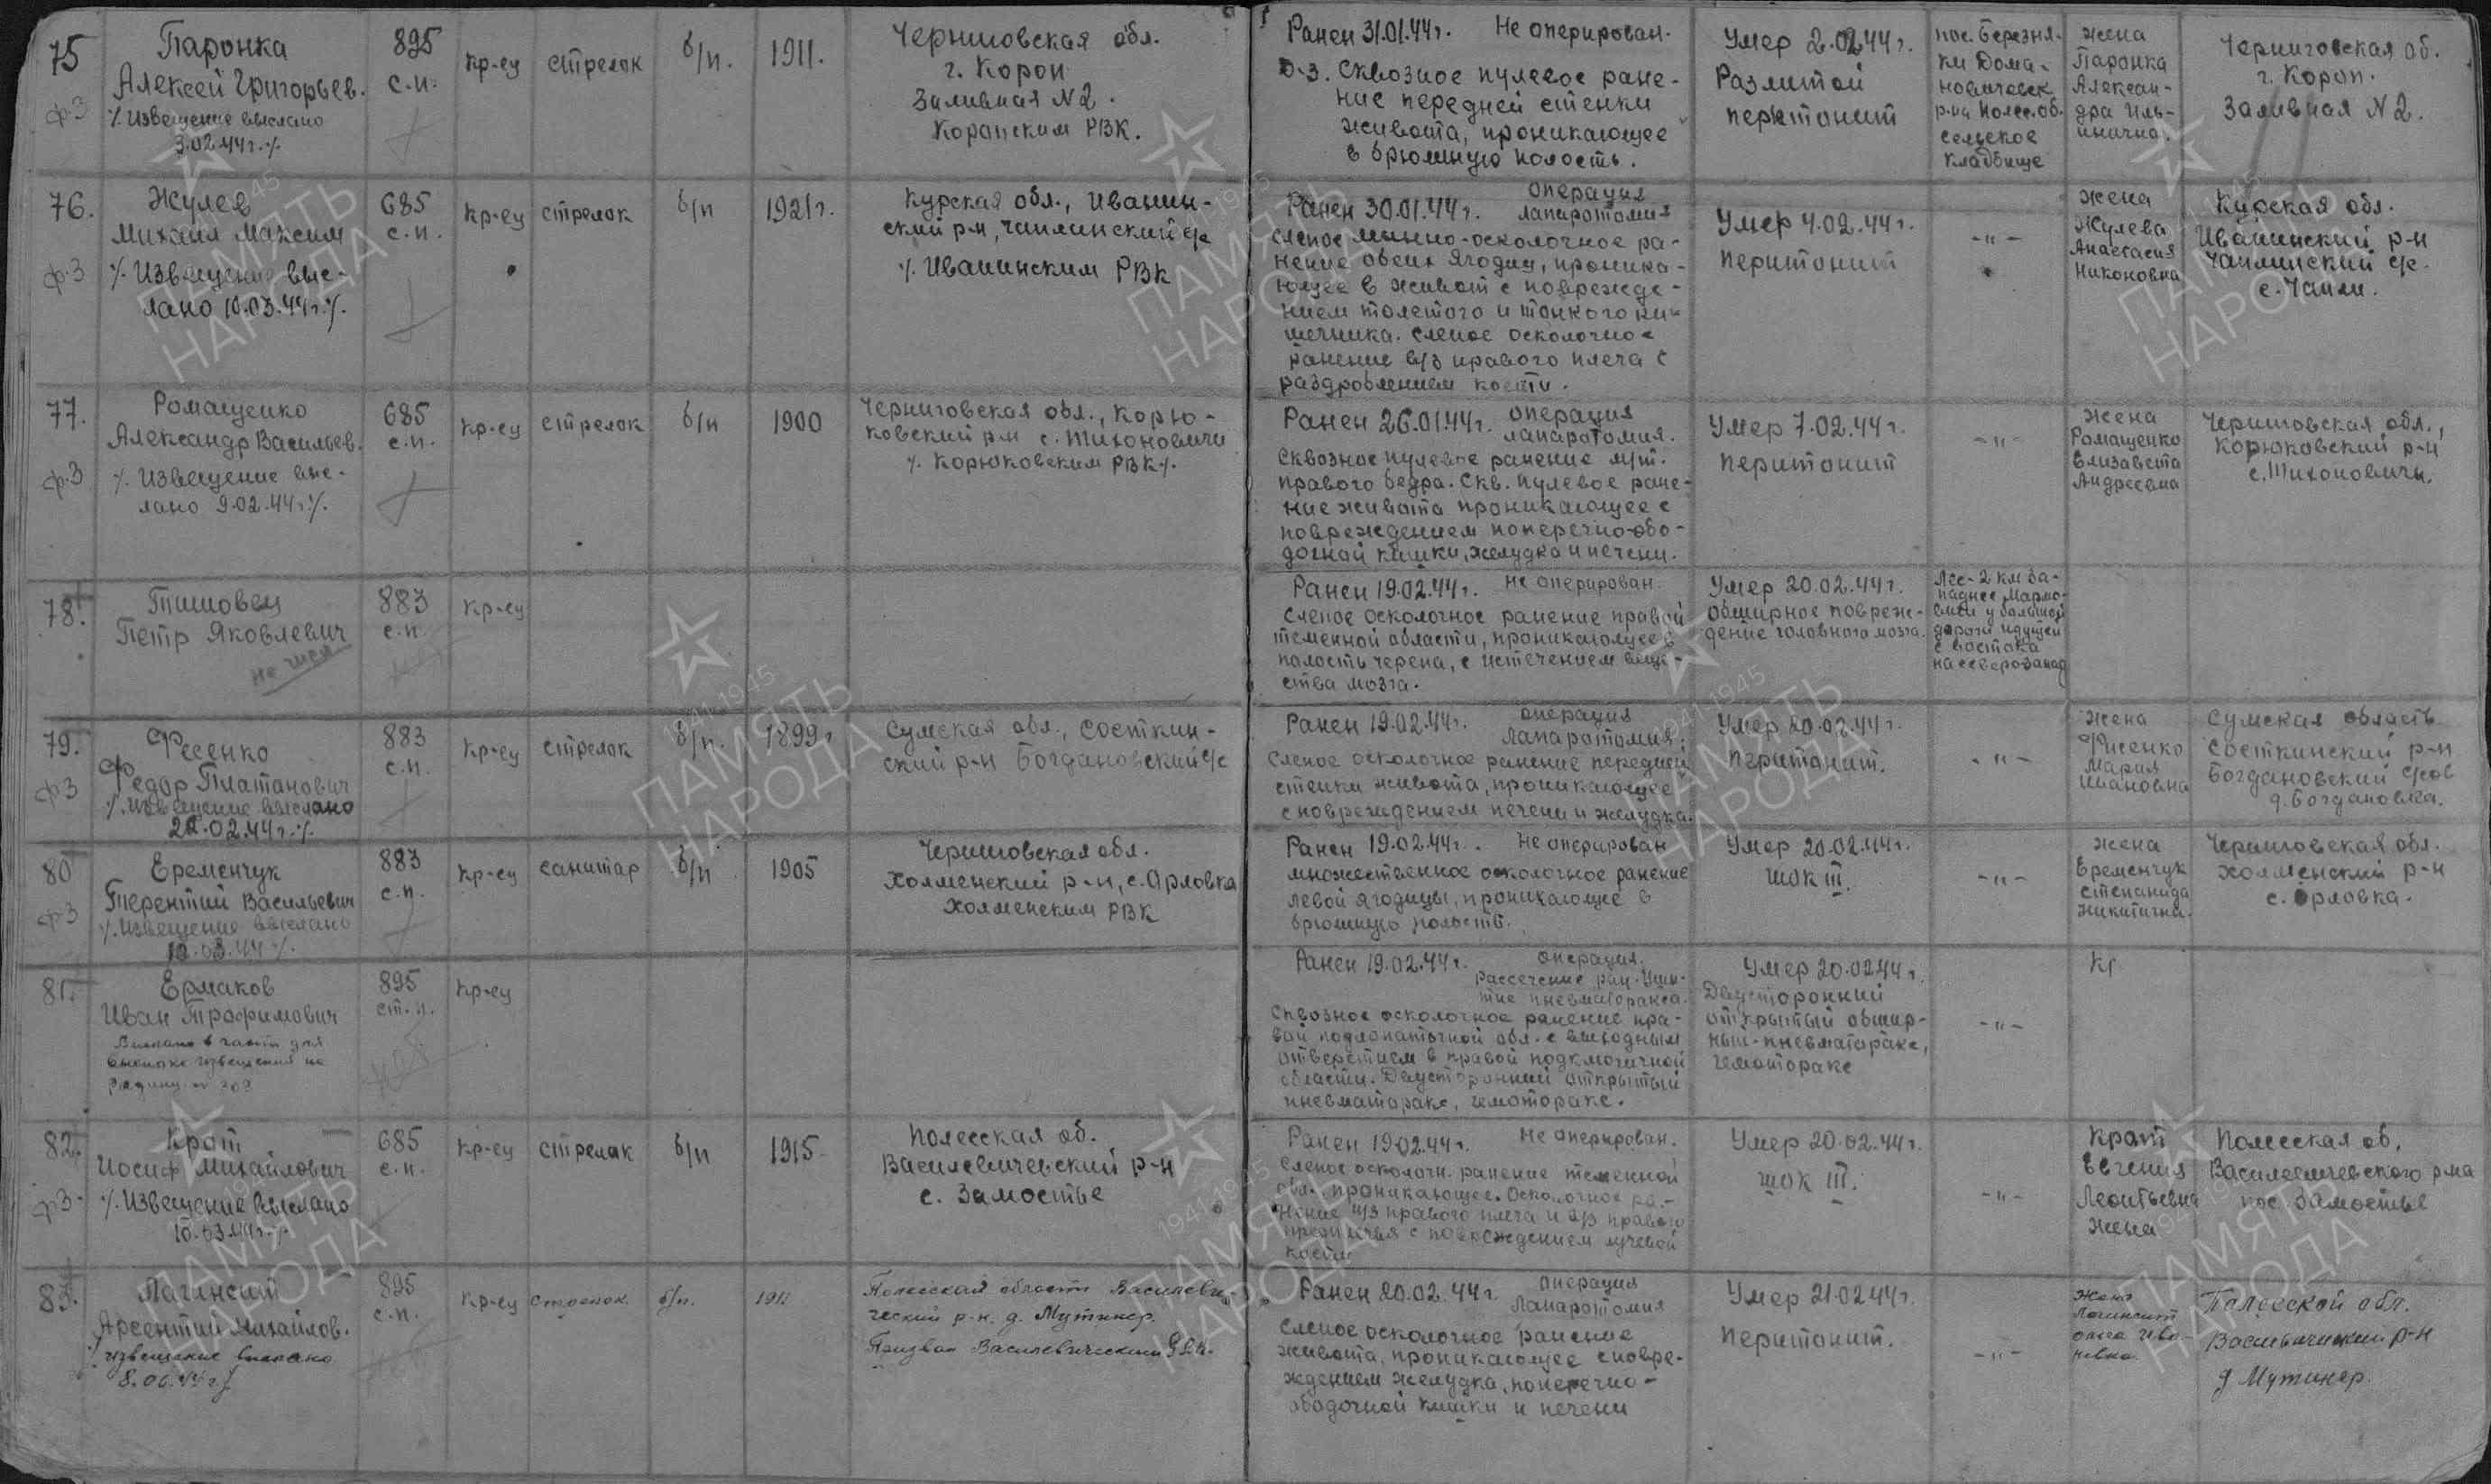 75
Паронка
Алексей Григорьев.
ф.3
٪ Извещение выслано
3.02.44г.٪
895
с.п.
кр-ец
стрелок
б/п.
1911.
Черниговская обл.
г. Короп
Заливная №2.
Коропским РВК.
Ранен 31.01.44г. Не оперирован.
D-з. Сквозное пулевое ране-
ние передней стенки
живота, проникающее
в брюшную полость.
Умер 2.02.44г.
Разлитой
перитонит
пос. Березня-
ки Дома-
новичевск
р-на Полес.об.
сельское
кладбище
жена
Паронка
Алексан-
дра Иль-
инична.
Черниговская об.
г. Короп.
Заливная №2.
76.
Жулев
Михаил Максим
ф.3
٪ Извещение выс-
лано 10.03.44г.٪
685
с.п.
кр-ец
стрелок
б/п
1921г.
Курская обл., Иванин-
ский р-н, Чаплинский с/с
٪ Иванинским РВК
Ранен 30.01.44г. операция лапаротомия
Слепое минно-осколочное ра-
нение обеих ягодиц, проника-
ющее в живот с поврежде-
нием толстого и тонкого ки-
шечника. Слепое осколочное
ранение в/з правого плеча с
раздроблением кости.
Умер 4.02.44г.
перитонит
-"-
жена
Жулева
Анастасия
Никоновна
Курская обл.
Иванинский р-н
Чаплинский с/с.
с. Чапли.
77.
Ромащенко
Александр Васильев.
ф.3
٪ Извещение выс-
лано 9.02.44г.٪
685
с.п.
кр-ец
стрелок
б/п
1900
Черниговская обл., Корю-
ковский р-н с. Тихоновичи
٪ Корюковским РВК٪.
Ранен 26.01.44г. операция лапаротомия.
Сквозное пулевое ранение м/т.
правого бедра. Скв. пулевое ране-
ние живота проникающее с
повреждением поперечно-обо-
дочной кишки, желудка и печени.
Умер 7.02.44г.
перитонит
-"-
жена
Ромащенко
Елизавета
Андреевна
Черниговская обл.,
Корюковский р-н
с. Тихоновичи.
78.
Тишовец
Петр Яковлевич
не числ
883
с.п.
кр-ец
Ранен 19.02.44г. Не оперирован.
Слепое осколочное ранение правой
теменной области, проникающее в
полость черепа, с истечением веще-
ства мозга.
Умер 20.02.44г.
обширное повреж-
дение головного мозга.
Лес-2 км за-
паднее Мармо-
вичи у большой
дороги идущей
с востока
на северозапад
79.
Фесенко
Федор Платанович
ф3
٪. Извещение выслано
22.02.44г.٪
883
с.п.
кр-ец
стрелок
б/п.
1899г
Сумская обл., Состкин-
ский р-н Богдановский с/с
Ранен 19.02.44г. операция лапаротомия.
Слепое осколочное ранение передней
стенки живота, проникающее
с повреждением печени и желудка.
Умер 20.02.44г.
перитонит.
-"-
жена
Фисенко
Мария
Ивановна
Сумская область
Состкинский р-н
Богдановский с/сов
д. Богдановка.
80
Еременчук
Терентий Васильевич
ф3
٪. Извещение выслано
10.03.44٪.
883
с.п.
кр-ец
санитар
б/п
1905
Черниговская обл.
Холменский р-н, с. Орловка
Холменским РВК
Ранен 19.02.44г. Не оперирован
множественное осколочное ранение
левой ягодицы, проникающее в
брюшную полость.
Умер 20.02.44г.
шок III.
-"-
жена
Еременчук
Степанида
Никитична.
Черниговская обл.
Холменский р-н
с. Орловка.
81.
Ермаков
Иван Трофимович
Выслано в часть для
высылке извещения на
родину
895
ст.п.
кр-ец
Ранен 19.02.44г. операция.
Рассечение ран. Уши-
тие пневмоторакса.
Сквозное осколочное ранение пра-
вой подлопаточной обл. с выходным
отверстием в правой подключичной
области. Двусторонний открытый
пневматоракс, гемоторакс.
Умер 20.02.44г.
Двусторонний
открытый обшир-
ный-пневматоракс,
гемоторакс
-"-
Кр
82.
Крот
Иосиф Михайлович
ф3.
٪. Извещение выслано
10.03.44г.٪
685
с.п.
кр-ец
стрелок
б/п
1915
Полесская об.
Василевичевский р-н
с. Замостье
Ранен 19.02.44г. Не оперирован.
Слепое осколочн. ранение теменной
обл. проникающее. Осколочное ра-
нение н/з правого плеча и в/з правого
предплечья с повреждением лучевой
кости
Умер 20.02.44г.
шок III.
-"-
Крот
Евгения
Леонтьевна
жена
Полесская об.
Василевичевского р-на
пос. Замостье
83.
Лагинский
Арсентий Михайлов.
٪ извещение выслано
8.06.44г٪
895
с.п.
кр-ец
стрелок.
б/п.
1911
Полесская область Василеви-
ческий р-н. д. Мутинер.
Призван Василевическим РВК.
Ранен 20.02.44г. операция Лапаротомия
Слепое осколочное ранение
живота, проникающее с повре-
ждением желудка, поперечно-
ободочной кишки и печени
Умер 21.02.44г.
перитонит.
-"-
жена
Полесской обл.
Василевичский р-н
д Мутинер.
1941-1945
ПАМЯТЬ
НАРОДА